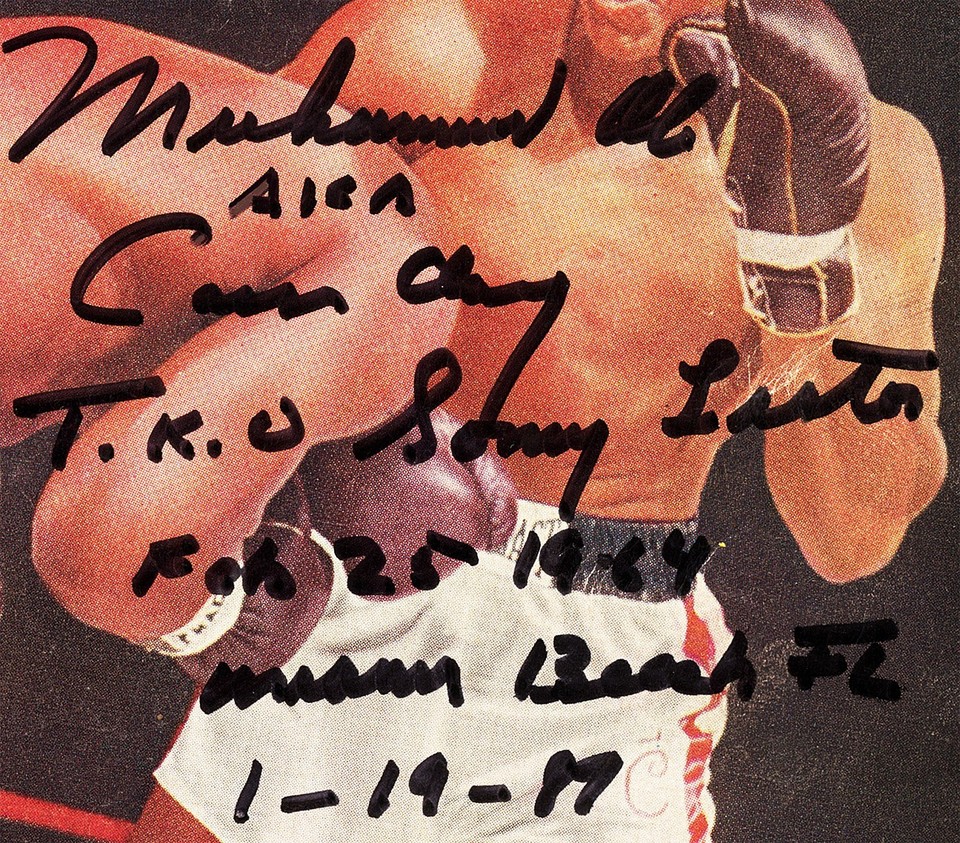 Muhammad Ali
AKA
Cassius Clay
T.K.O Sonny Liston
Feb 25 1964
Miami Beach FL
1-19-87